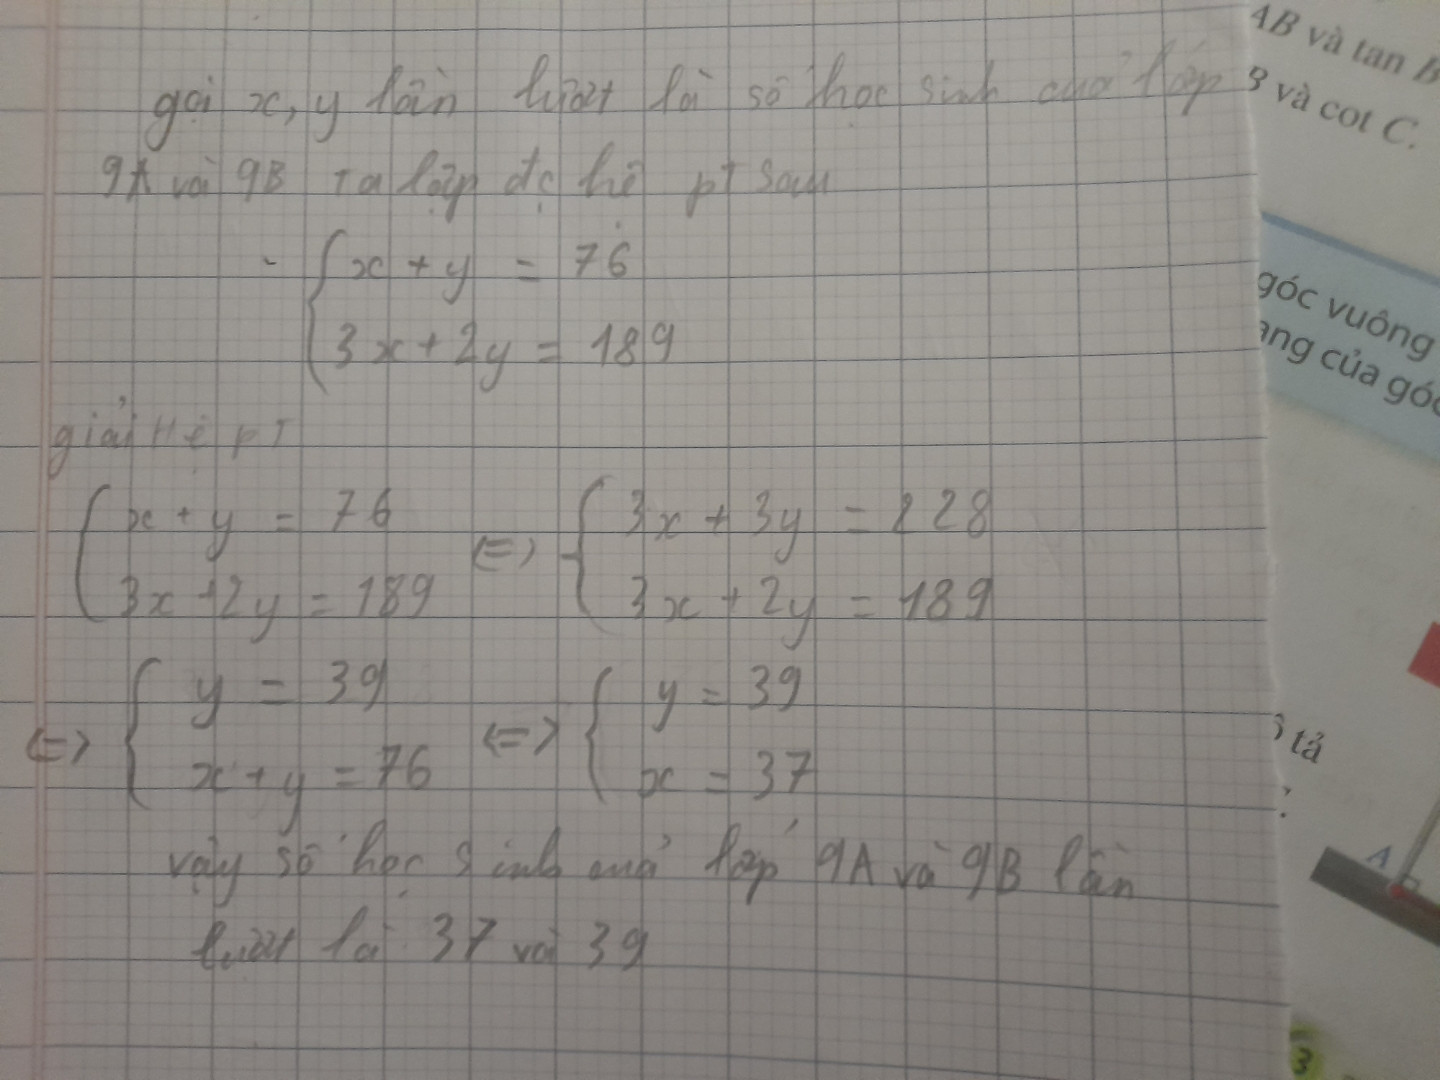 gọi x, y lần lượt là số học sinh của lớp
9A và 9B Ta lập đc hệ pT sau
- { x + y = 76
3x + 2y = 189
giải Hệ pT
{ x + y = 76 <=> { 3x + 3y = 228
3x + 2y = 189 3x + 2y = 189
<=> { y = 39 <=> { y = 39
x + y = 76 x = 37
vậy số học sinh của lớp 9A và 9B lần
lượt là 37 và 39
AB và tan B
B và cot C.
góc vuông
ang của góc
tả
A
3